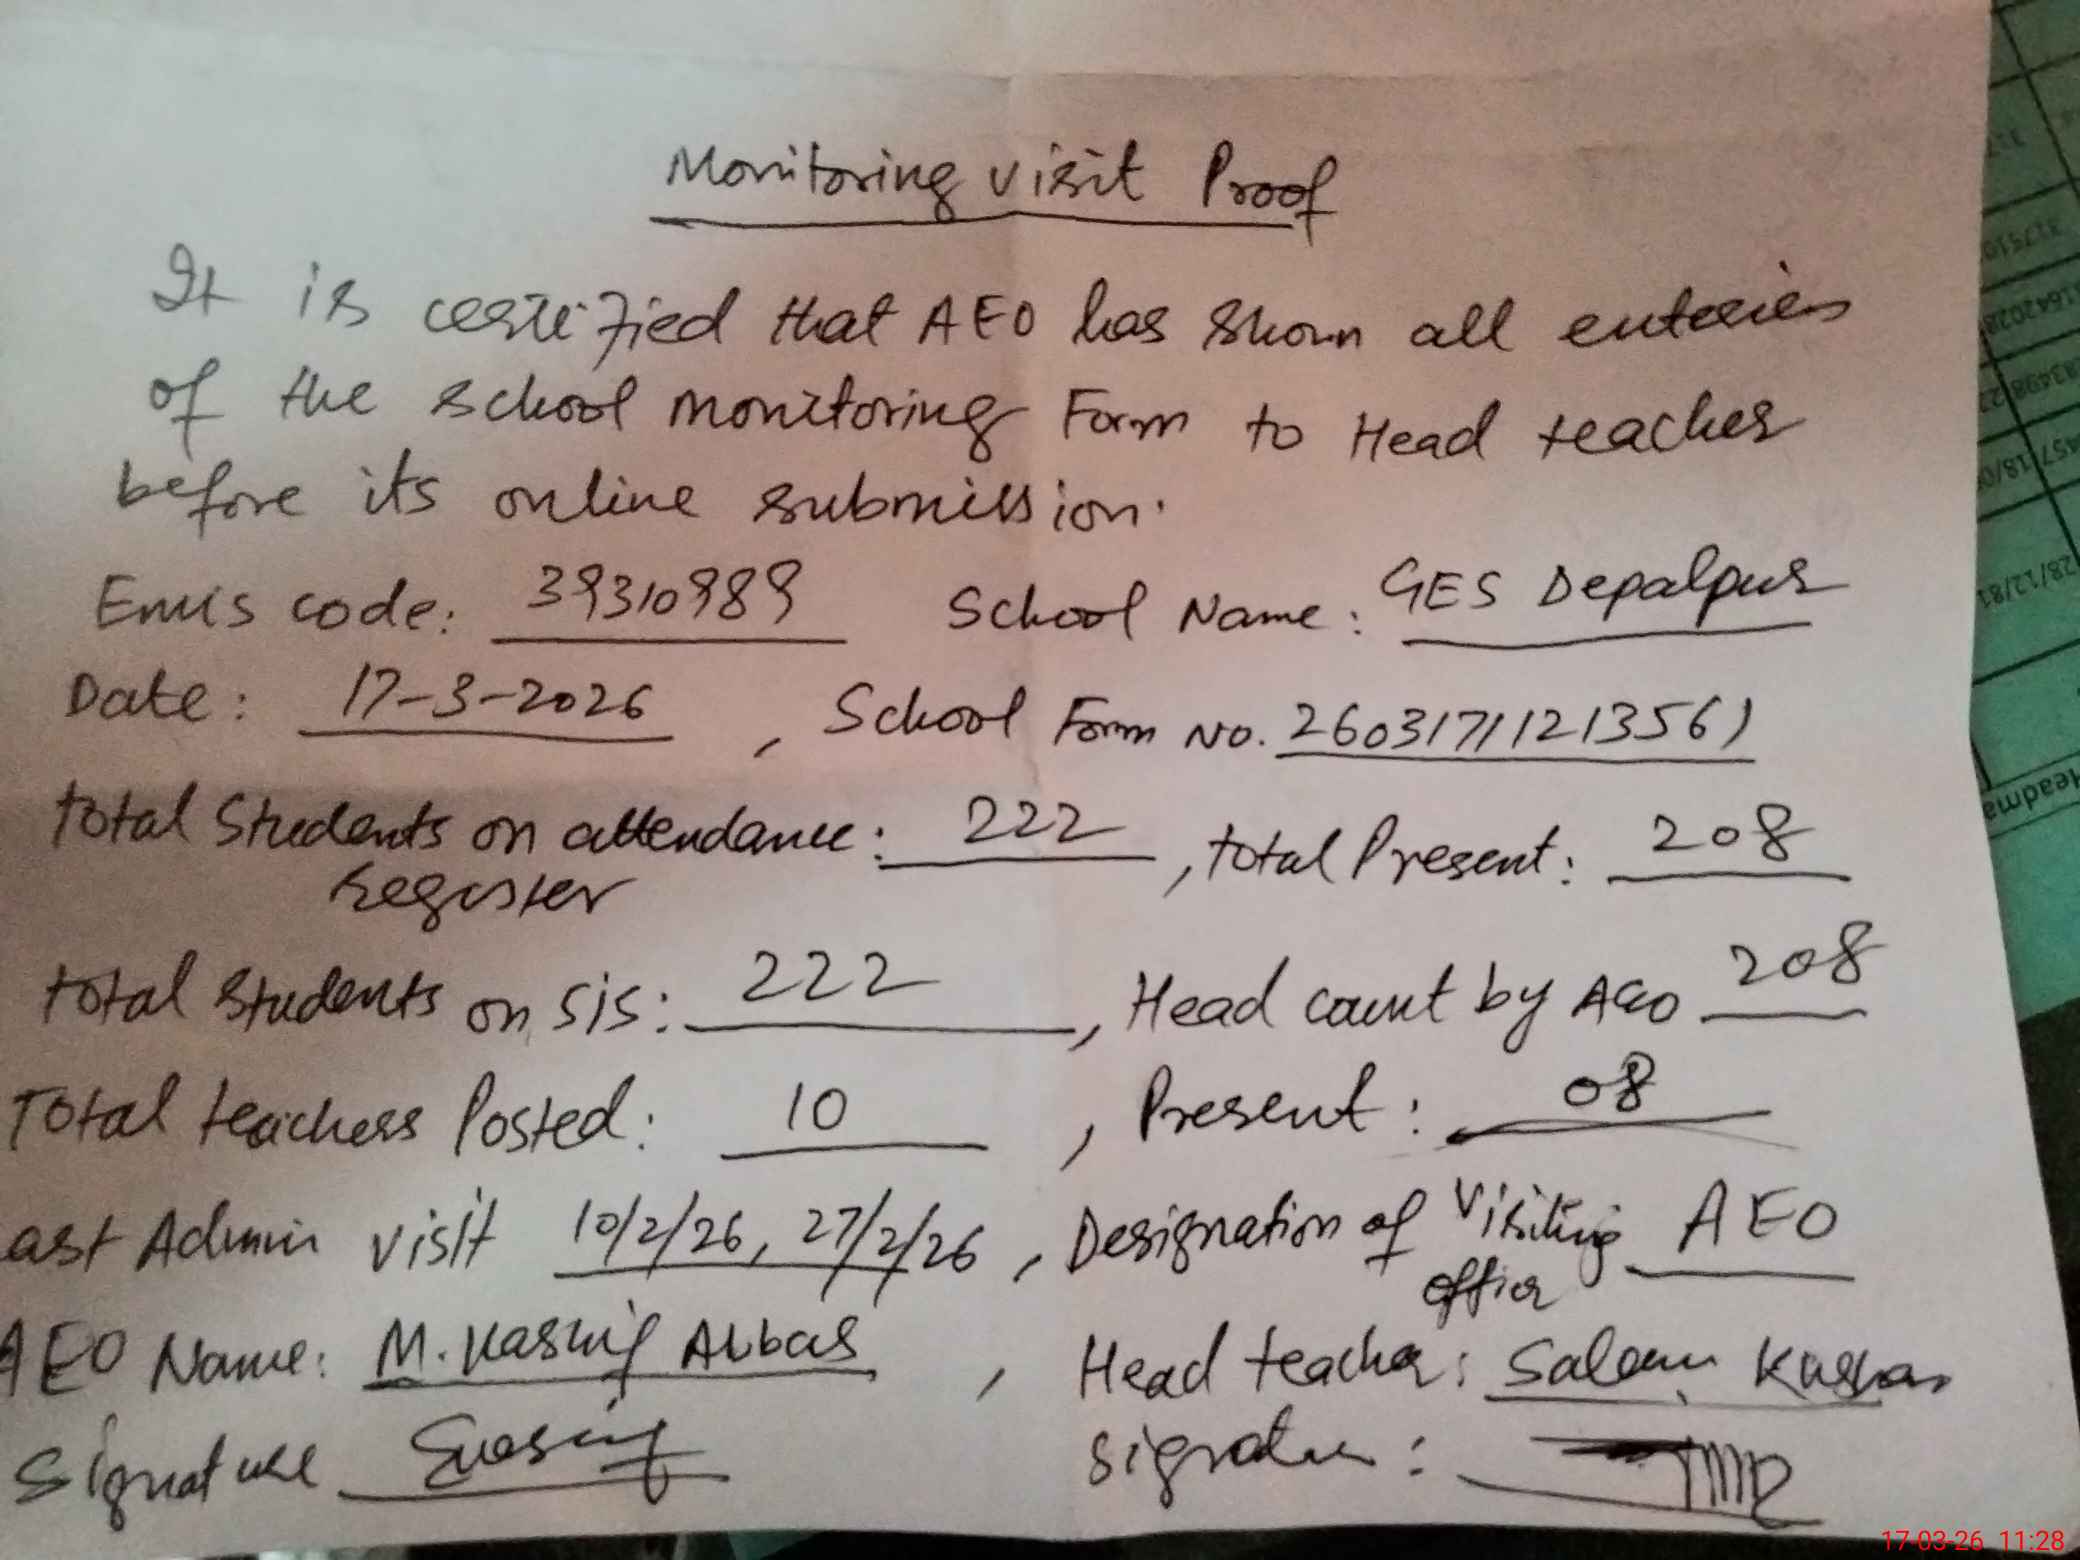 Monitoring visit Proof
It is certified that AEO has shown all enteries
of the school monitoring Form to Head teacher
before its online submission.
Emis code: 39310989 School Name: GES Depalpur
Date: 17-3-2026, School Form No. 26031711213561
total Students on attendance: 222, total Present: 208
register
total students on SIS: 222, Head count by AEO 208
Total teachers Posted: 10, Present: 08
ast Admin visit 10/2/26, 27/2/26, Designation of Visiting AEO
officer
AEO Name: M. Kashif Abbas, Head teacher: Saleem
Signature signature:
17-03-26 11:28